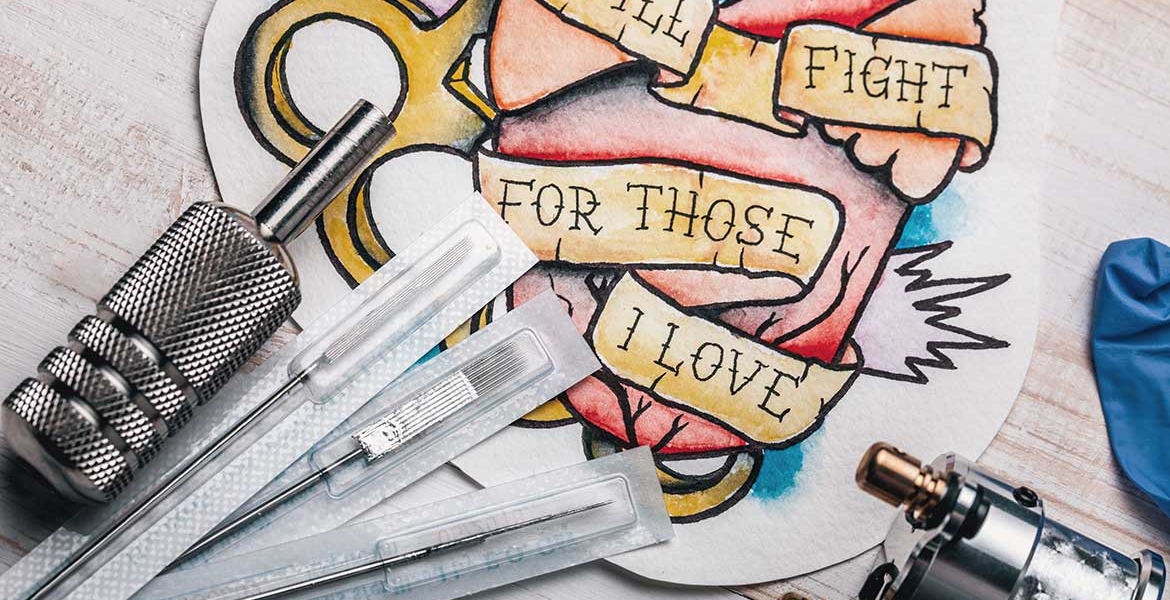 FIGHT
FOR THOSE
I LOVE